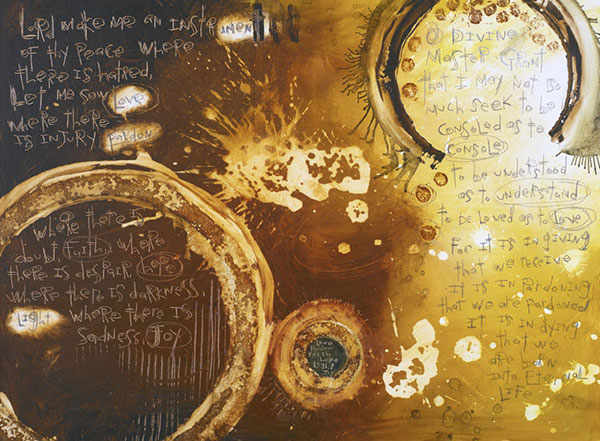 Lord make me an Instrument
of thy Peace where
there is hatred,
Let me sow Love
where there
is injury pardon
where there is
doubt Faith where
there is despair Hope
where there is darkness,
Light where there is
Sadness. Joy
O DIVINE
Master Grant
that I May Not So
much seek to be
Consoled as to
Console
to be understood
as to understand
to be loved as to Love
For it is in giving
that we receive
It is in Pardoning
that we are pardoned
It is in dying
that we
are born
into Eternal
Life
Love
Pardon
Faith
Hope
Light
Joy